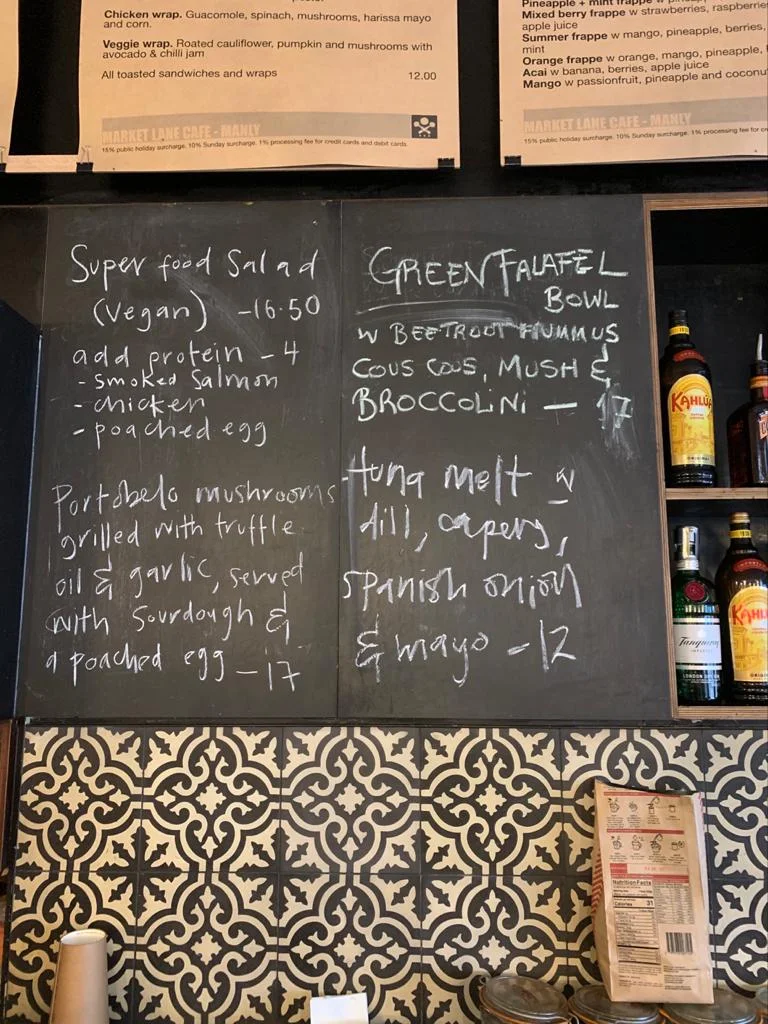 Chicken wrap. Guacomole, spinach, mushrooms, harissa mayo
and corn.
Veggie wrap. Roated cauliflower, pumpkin and mushrooms with
avocado & chilli jam
All toasted sandwiches and wraps 12.00
MARKET LANE CAFE - MANLY
15% public holiday surcharge. 10% Sunday surcharge. 1% processing fee for credit cards and debit cards.
Pineapple + mint frappe w
Mixed berry frappe w strawberries, raspberries
apple juice
Summer frappe w mango, pineapple, berries,
mint
Orange frappe w orange, mango, pineapple,
Acai w banana, berries, apple juice
Mango w passionfruit, pineapple and coconut
MARKET LANE CAFE - MANLY
15% public holiday surcharge. 10% Sunday surcharge. 1% processing fee for cr
Super food Salad
(Vegan) -16.50
add protein - 4
- smoked Salmon
- chicken
- poached egg
Portobelo mushrooms
grilled with truffle
oil & garlic, served
with Sourdough &
a poached egg - 17
GREEN FALAFEL
BOWL
W BEETROOT HUMMUS
COUS COUS, MUSH &
BROCCOLINI - 17
Tuna melt w
dill, capers,
Spanish onion
& mayo - 12
KAHLÚA
ORIGINAL
Tanqueray
LONDON DRY
KAHLÚ
Nutrition Facts
Calories 31